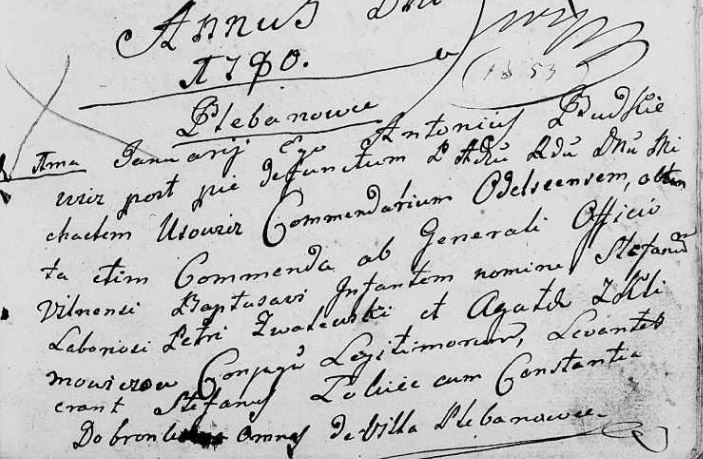 Annus Dni
1780.
1853
Plebanowce
1ma Januarij Ego Antonius Rudkie
wicz post pie defunctum P Adm Rdm Dnm Mi
chaelem Usowicz Commendarium Odelscensem, obten
ta etim Commenda ab Generali Officio
Vilnensi Baptisavi Infantem nomine Stefanum
Laboriosi Petri Zwalewski et Agatha Zobli
mowiczow Conjugu Legitimorum, Levantes
erant Stefanus cum Constantia
omnes de Villa Plebanowce.